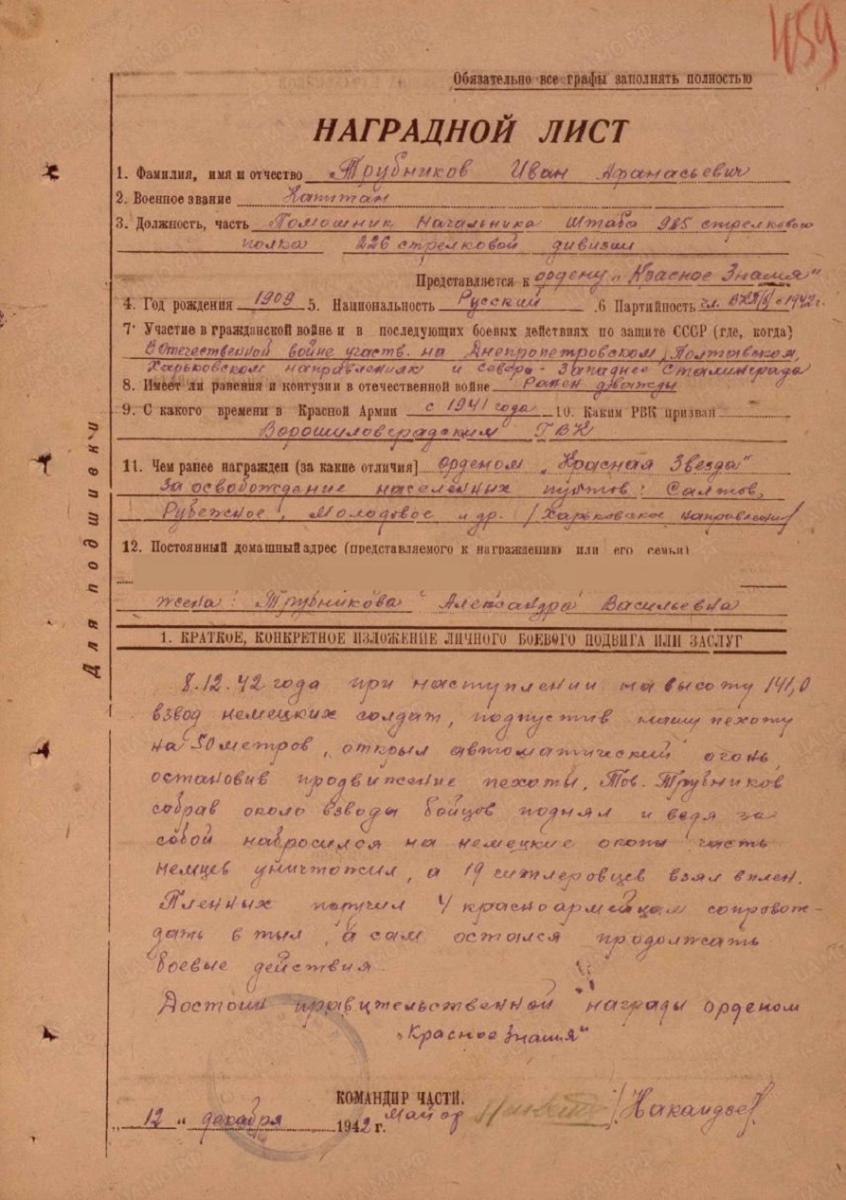 459
Обязательно все графы заполнять полностью
НАГРАДНОЙ ЛИСТ
1. Фамилия, имя и отчество Трубников Иван Афанасьевич
2. Военное звание Капитан
3. Должность, часть Помошник Начальника Штаба 985 стрелкового
полка 226 стрелковой дивизии
Представляется к ордену „Красное Знамя"
4. Год рождения 1909 5. Национальность Русский .6 Партийность чл. ВКП(б) с 1942 г.
7. Участие в гражданской войне и в последующих боевых действиях по защите СССР (где, когда)
В Отечественной войне участв. на Днепропетровском, Полтавском,
Харьковском направлениях и северо-западнее Сталинграда
8. Имеет ли ранения и контузии в отечественной войне Ранен дважды
9. С какого времени в Красной Армии с 1941 года 10. Каким РВК призван
Ворошиловградским ГВК
11. Чем ранее награжден (за какие отличия] орденом „Красная Звезда"
За освобождение населённых пунктов: Салтов,
Рубежное, Молодовое и др. /Харьковское направление/
12. Постоянный домашный адрес (представляемого к награждению или его семьи)
жена: Трубникова Александра Васильевна
1. КРАТКОЕ, КОНКРЕТНОЕ ИЗЛОЖЕНИЕ ЛИЧНОГО БОЕВОГО ПОДВИГА ИЛИ ЗАСЛУГ
8.12.42 года при наступлении на высоту 141,0
взвод немецких солдат, подпустив нашу пехоту
на 50 метров, открыл автоматический огонь,
остановив продвижение пехоты. Тов. Трубников
собрав около взвода бойцов поднял и ведя за
собой набросился на немецкие окопы часть
немцев уничтожил, а 19 гитлеровцев взял в плен.
Пленных поручил 4 красноармейцам сопровож-
дать в тыл, а сам остался продолжать
боевые действия.
Достоин правительственной награды орденом
„Красное Знамя"
КОМАНДИР ЧАСТИ.
„12" декабря 1942 г. Майор
Для подшивки